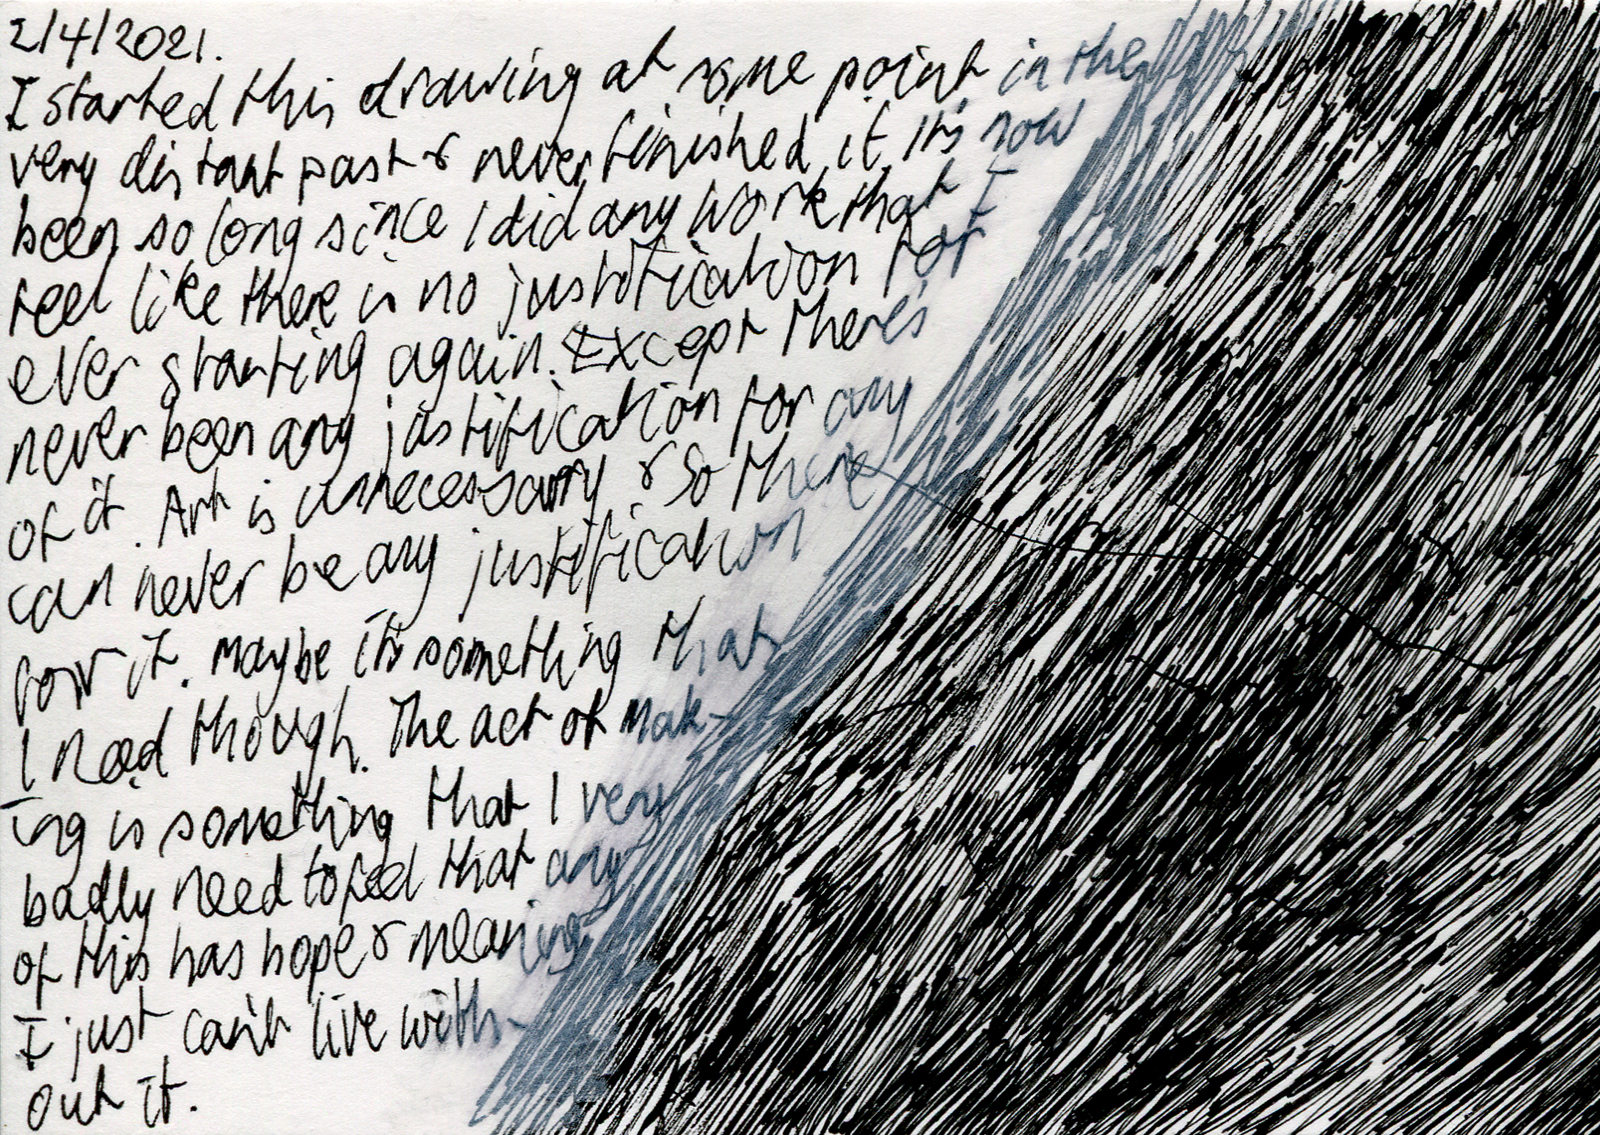 2/4/2021.
I started this drawing at some point in the
very distant past & never finished it. It's now
been so long since I did any work that I
feel like there is no justification for
ever starting again. Except there's
never been any justification for any
of it. Art is unnecessary & so there
can never be any justification
for it. Maybe it's something that
I need though. The act of mak-
ing is something that I very
badly need to feel that any
of this has hope & meaning
I just can't live with-
out it.